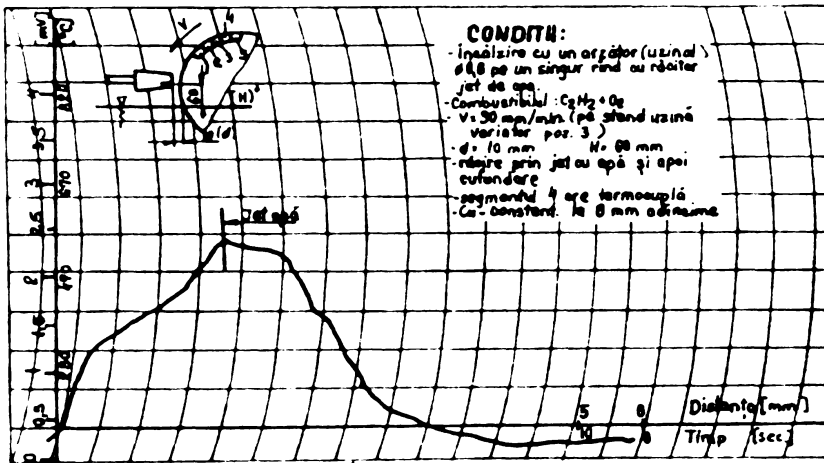 CONDIȚII:
- încălzire cu un arzător (uzinal)
pe un singur rînd cu răcitor
jet de apă.
- Combustibilul : C₂H₂ + O₂
V = 90 mm/min. (pă stand uzină
variator poz. 3)
- d = 10 mm H = 60 mm
- răcire prin jet cu apă și apoi
cufundare
- segmentul 4 are termocuplă
- Cu - constant. la 8 mm adîncime
[mV] [°C]
V 4
60 (H)
(d)
4
3,5
3 670
2,5
2 490
1,5
1 280
0,5
0
Jet apă
5 6
Distanța [mm]
10
Timp [sec]